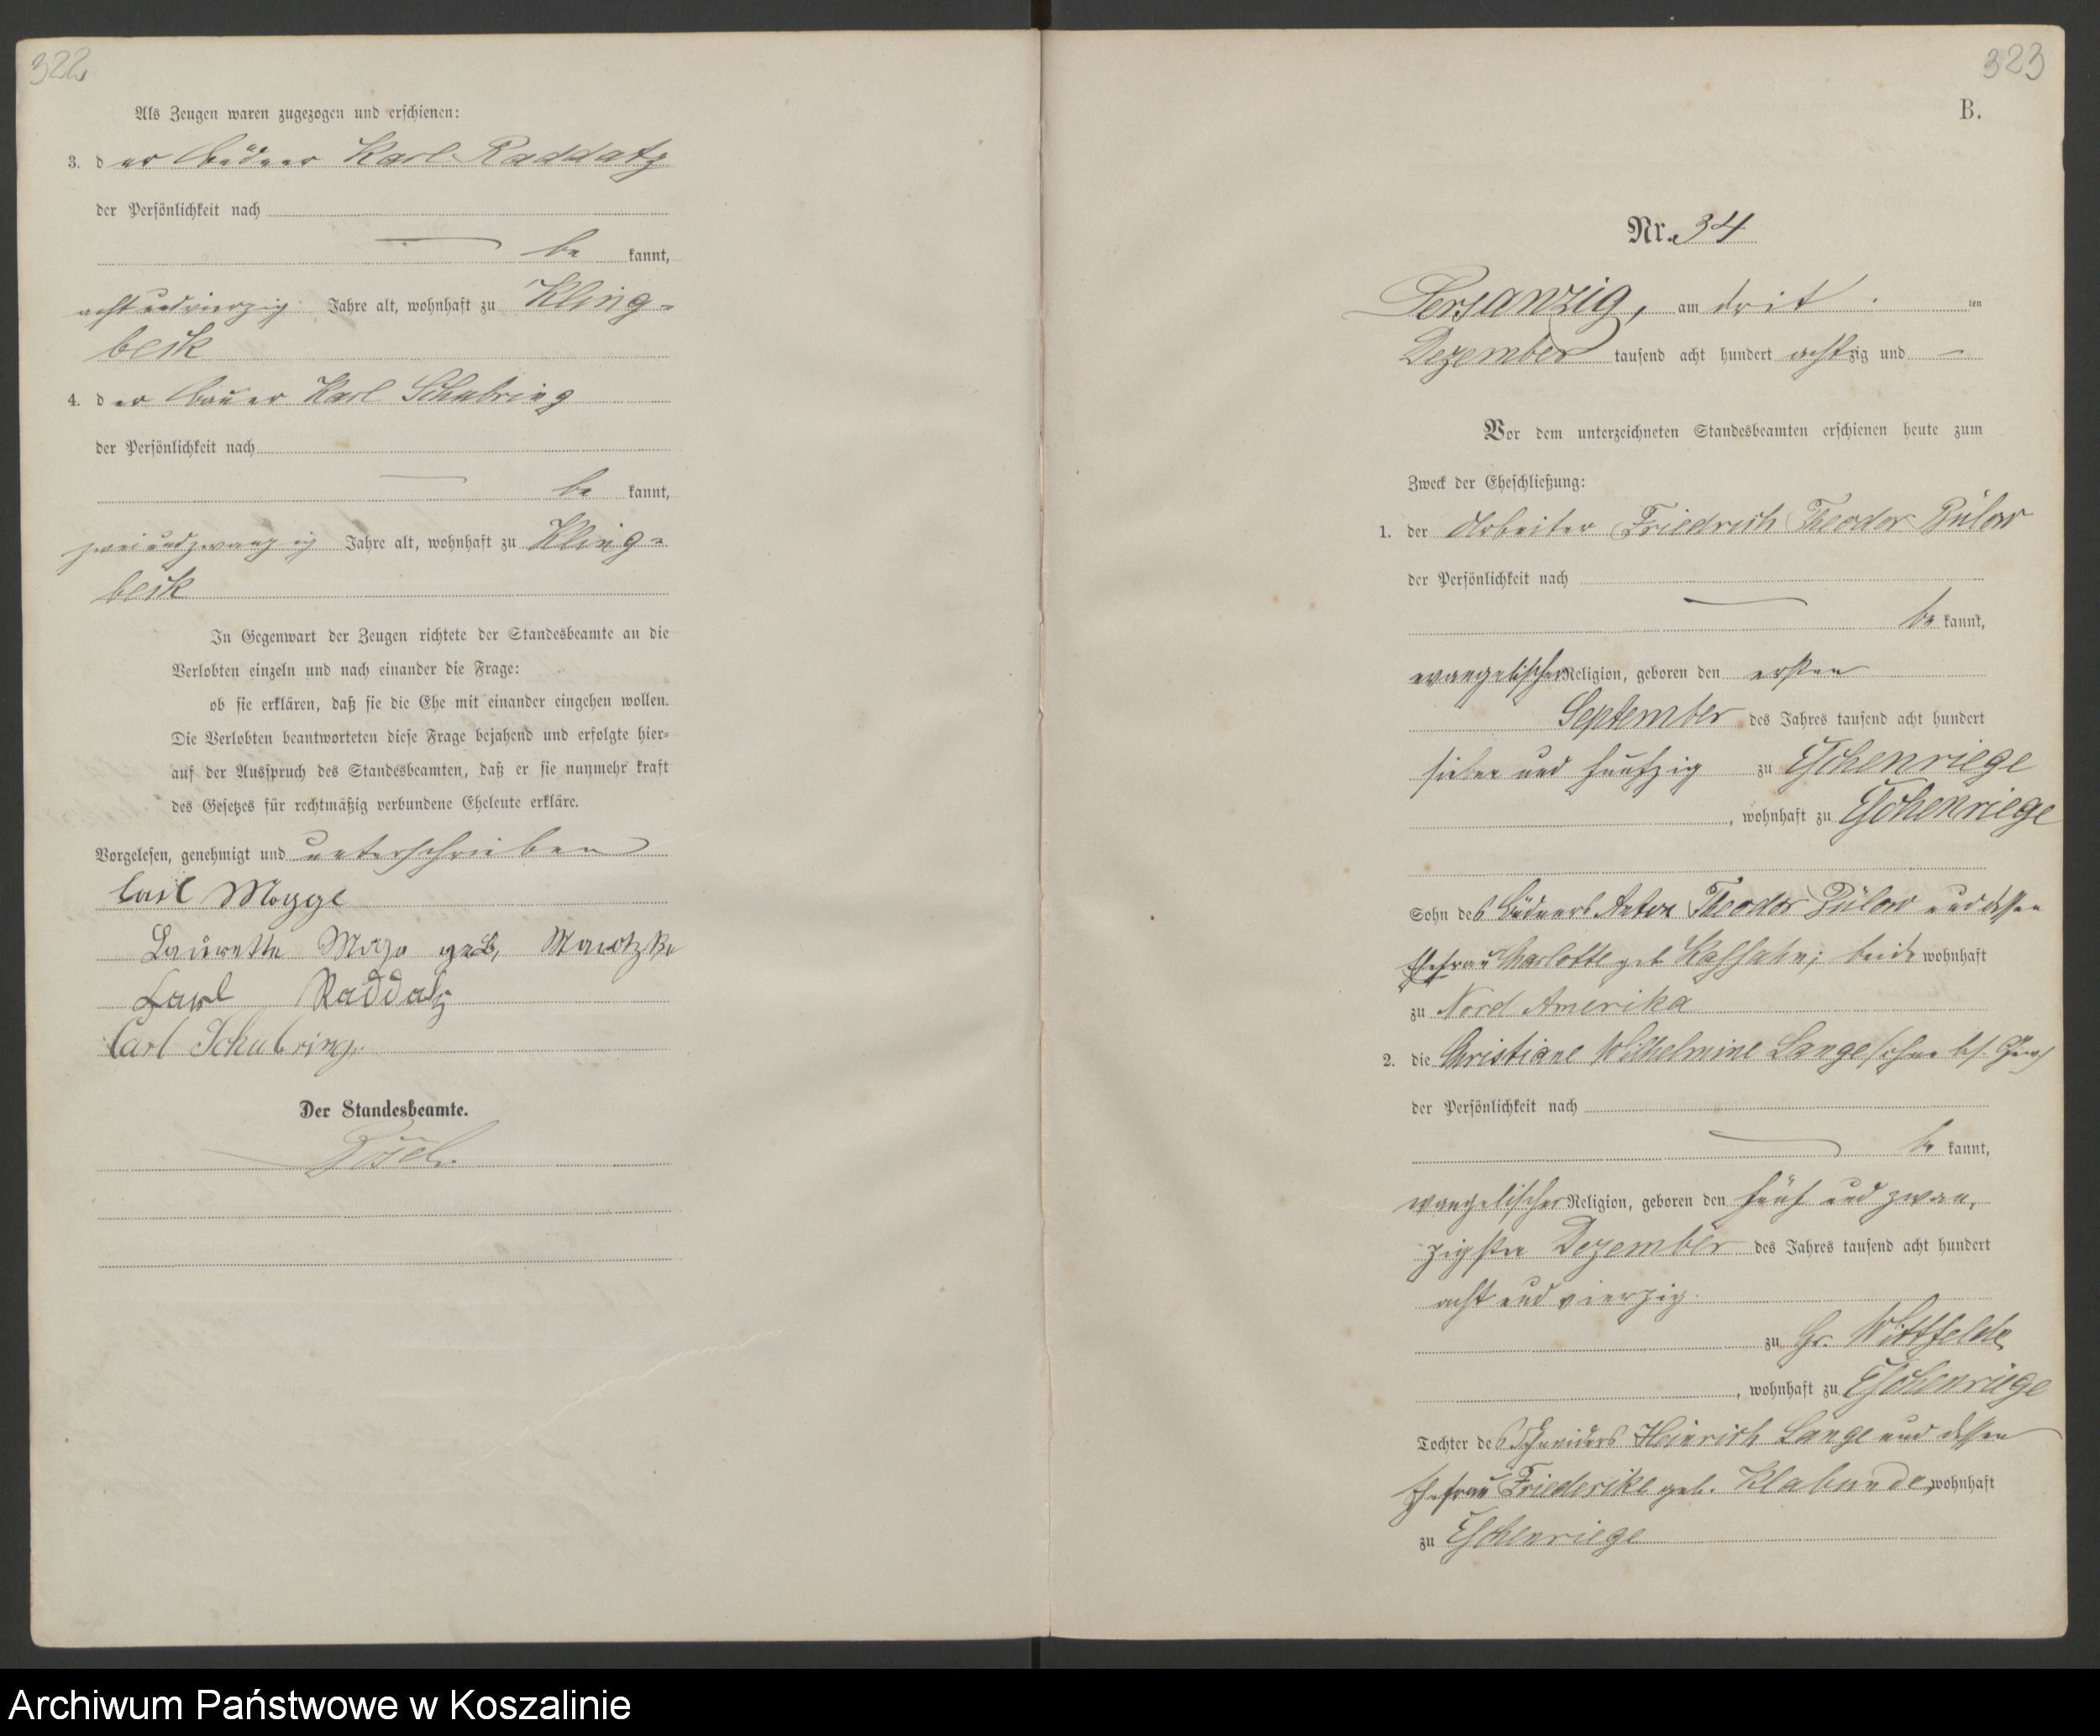 322
Als Zeugen waren zugezogen und erschienen:
3. der Büdner Karl Raddatz
der Persönlichkeit nach
be kannt,
achtundvierzig Jahre alt, wohnhaft zu Kling-
beck
4. der Bauer Karl Schubring
der Persönlichkeit nach
be kannt,
zweiundzwanzig Jahre alt, wohnhaft zu Kling-
beck
In Gegenwart der Zeugen richtete der Standesbeamte an die
Verlobten einzeln und nach einander die Frage:
ob sie erklären, daß sie die Ehe mit einander eingehen wollen.
Die Verlobten beantworteten diese Frage bejahend und erfolgte hier-
auf der Ausspruch des Standesbeamten, daß er sie nunmehr kraft
des Gesetzes für rechtmäßig verbundene Eheleute erkläre.
Vorgelesen, genehmigt und unterschrieben
Carl
Laurette geb,
Carl Raddatz
Carl Schubring.
Der Standesbeamte.
323
B.
Nr. 34
Persanzig, am dritten
Dezember tausend acht hundert achtzig und —
Vor dem unterzeichneten Standesbeamten erschienen heute zum
Zweck der Eheschließung:
1. der Arbeiter Friedrich Theodor Bülow
der Persönlichkeit nach
be kannt,
evangelischer Religion, geboren den ersten
September des Jahres tausend acht hundert
sieben und funfzig zu Eschenriege
, wohnhaft zu Eschenriege
Sohn des Büdners Anton Theodor Bülow und dessen
Ehefrau Charlotte geb. beide wohnhaft
zu Nord Amerika
2. die Christiane Wilhelmine Lange
der Persönlichkeit nach
be kannt,
evangelischer Religion, geboren den fünf und zwan-
zigsten Dezember des Jahres tausend acht hundert
acht und vierzig.
zu Gr. Wittfelde
, wohnhaft zu Eschenriege
Tochter des Schneiders Heinrich Lange und dessen
Ehefrau Friederike geb. Klabunde, wohnhaft
zu Eschenriege
Archiwum Państwowe w Koszalinie